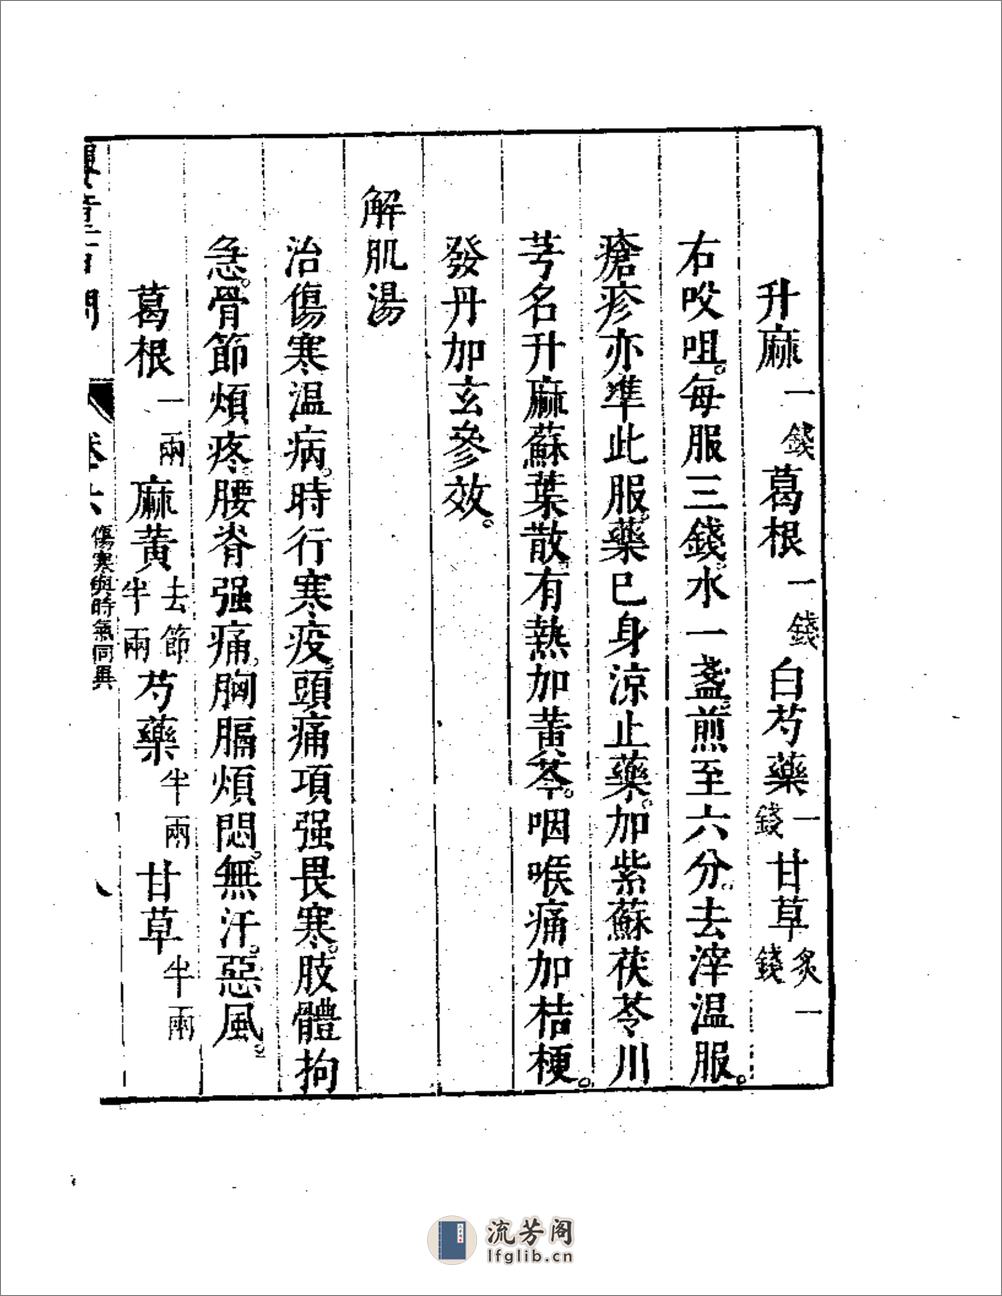 升麻一錢葛根一錢白芍藥一錢甘草炙一錢
右㕮咀。每服三錢。水一盞。煎至六分。去滓温服。
瘡疹亦準此服。藥已身涼止藥。加紫蘇茯苓川
芎名升麻蘇葉散。有熱加黃芩。咽喉痛加桔梗。
發丹加玄參效。
解肌湯
治傷寒温病。時行寒疫。頭痛項强畏寒。肢體拘
急。骨節煩疼。腰脊强痛。胸膈煩悶。無汗。惡風。
葛根一兩麻黃去節半兩芍藥半兩甘草半兩
卷六傷寒與時氣同異 八
流芳阁
lfglib.cn